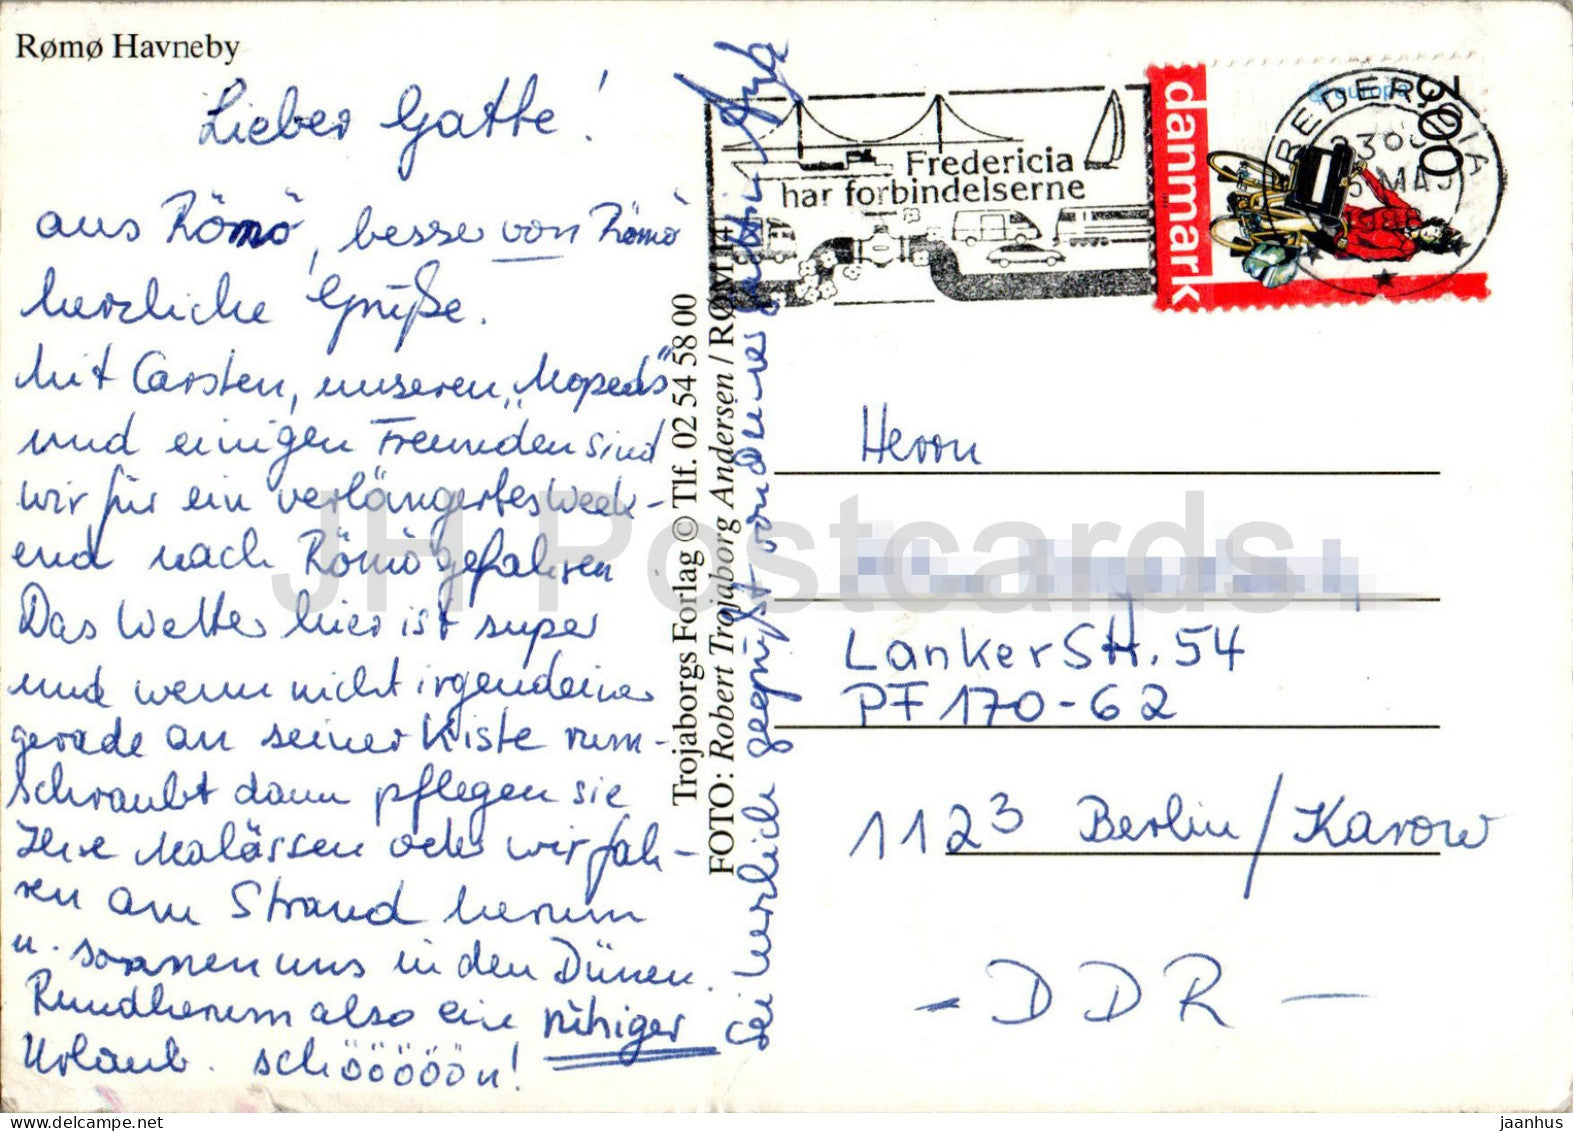 Rømø Havneby
Lieber Gatte!
aus Römö, besser von Römö
herzliche Grüße.
Mit Carsten, unseren „Mopeds"
und einigen Freunden sind
wir für ein verlängertes Week-
end nach Römö gefahren
Das Wetter hier ist super
und wenn nicht irgendeiner
gerade an seiner Kiste rum-
schraubt dann pflegen sie
Ihre Malässen oder wir fah-
ren am Strand herum
u. sonnen uns in den Dünen.
Rundherum also ein ruhiger
Urlaub. schöööööön!
Sei herzlich gegrüßt von Deiner Gattin
Trojaborgs Forlag © Tlf. 02 54 58 00
FOTO: Robert Trojaborg Andersen / RØM 14
Fredericia
har forbindelserne
danmark
europa
300
FREDERICIA
MAJ
Herrn
Lanker Str. 54
PF 170-62
1123 Berlin/Karow
- DDR -
JH Postcards
www.delcampe.net
jaanhus